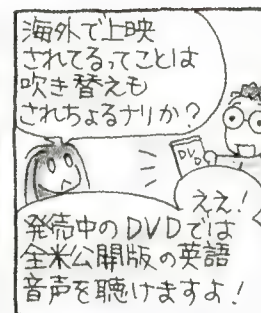 海外で上映
されてるってことは
吹き替えも
されちょるナリか？
DVD
ええ！
発売中のDVDでは
全米公開版の英語
音声を聴けますよ！